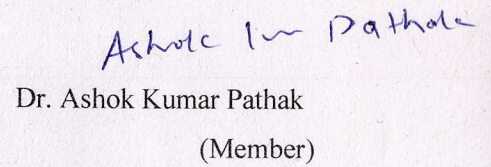 Ashok Km Pathak
Dr. Ashok Kumar Pathak
(Member)